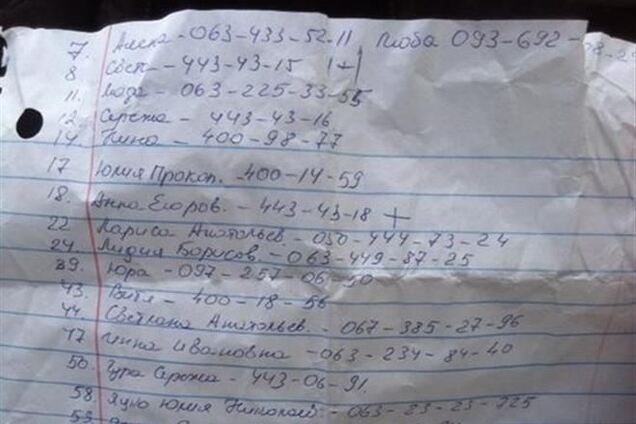 7. Алена - 063-433-52-11 Люба 093-692-
8 Свет - 443-43-15 1+
11. Люда - 063-225-33-55
12. Сережа - 443-43-16
14. Нина - 400-98-77
17 Юлия Прокоп. -400-14-59
18. Анна Егоров. - 443-43-18 +
22 Лариса Анатольев. - 050-444-73-24
24. Лидия Борисов. - 063-449-87-25
39. Юра - 097-257-06-50
43. Витя - 400-18-56
44. Светлана Анатольев. - 067-385-27-96
47 Инна Ивановна - 063-234-84-40
50. Сережа - 443-06-91.
58. Юлия - 063-23-23-725